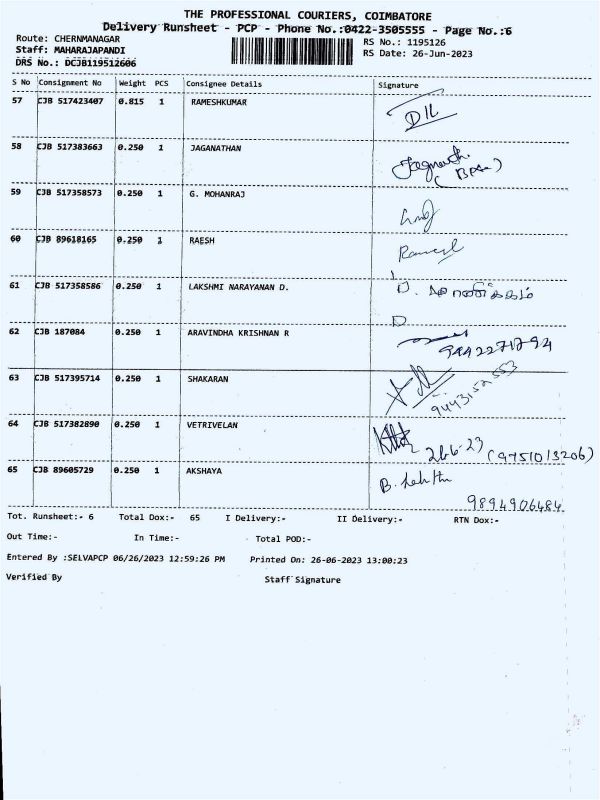 THE PROFESSIONAL COURIERS, COIMBATORE
Delivery Runsheet - PCP - Phone No.:0422-3505555 - Page No.:6
Route: CHERNMANAGAR
RS No.: 1195126
Staff: MAHARAJAPANDI
RS Date: 26-Jun-2023
DRS No.: DCJB119512606
S No Consignment No Weight PCS Consignee Details Signature
57 CJB 517423407 0.815 1 RAMESHKUMAR
58 CJB 517383663 0.250 1 JAGANATHAN
59 CJB 517358573 0.250 1 G. MOHANRAJ
60 CJB 89618165 0.250 1 RAESH
61 CJB 517358586 0.250 1 LAKSHMI NARAYANAN D.
62 CJB 187084 0.250 1 ARAVINDHA KRISHNAN R
9442271794
63 CJB 517395714 0.250 1 SHAKARAN
9443152553
64 CJB 517382890 0.250 1 VETRIVELAN
26-6-23 (9751013206)
65 CJB 89605729 0.250 1 AKSHAYA
9894906484
Tot. Runsheet:- 6 Total Dox:- 65 I Delivery:- II Delivery:- RTN Dox:-
Out Time:- In Time:- Total POD:-
Entered By :SELVAPCP 06/26/2023 12:59:26 PM Printed On: 26-06-2023 13:00:23
Verified By Staff Signature